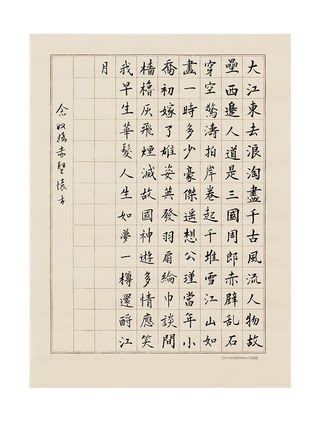 大江東去浪淘盡千古風流人物故
壘西邊人道是三國周郎赤辟乱石
穿空驚濤拍岸卷起千堆雪江山如
畫一時多少豪傑遥想公瑾當年小
喬初嫁了雄姿英發羽扇綸巾談間
檣櫓灰飛煙滅故國神遊多情應笑
我早生華髮人生如夢一樽還酹江
月
念奴嬌赤壁懷古